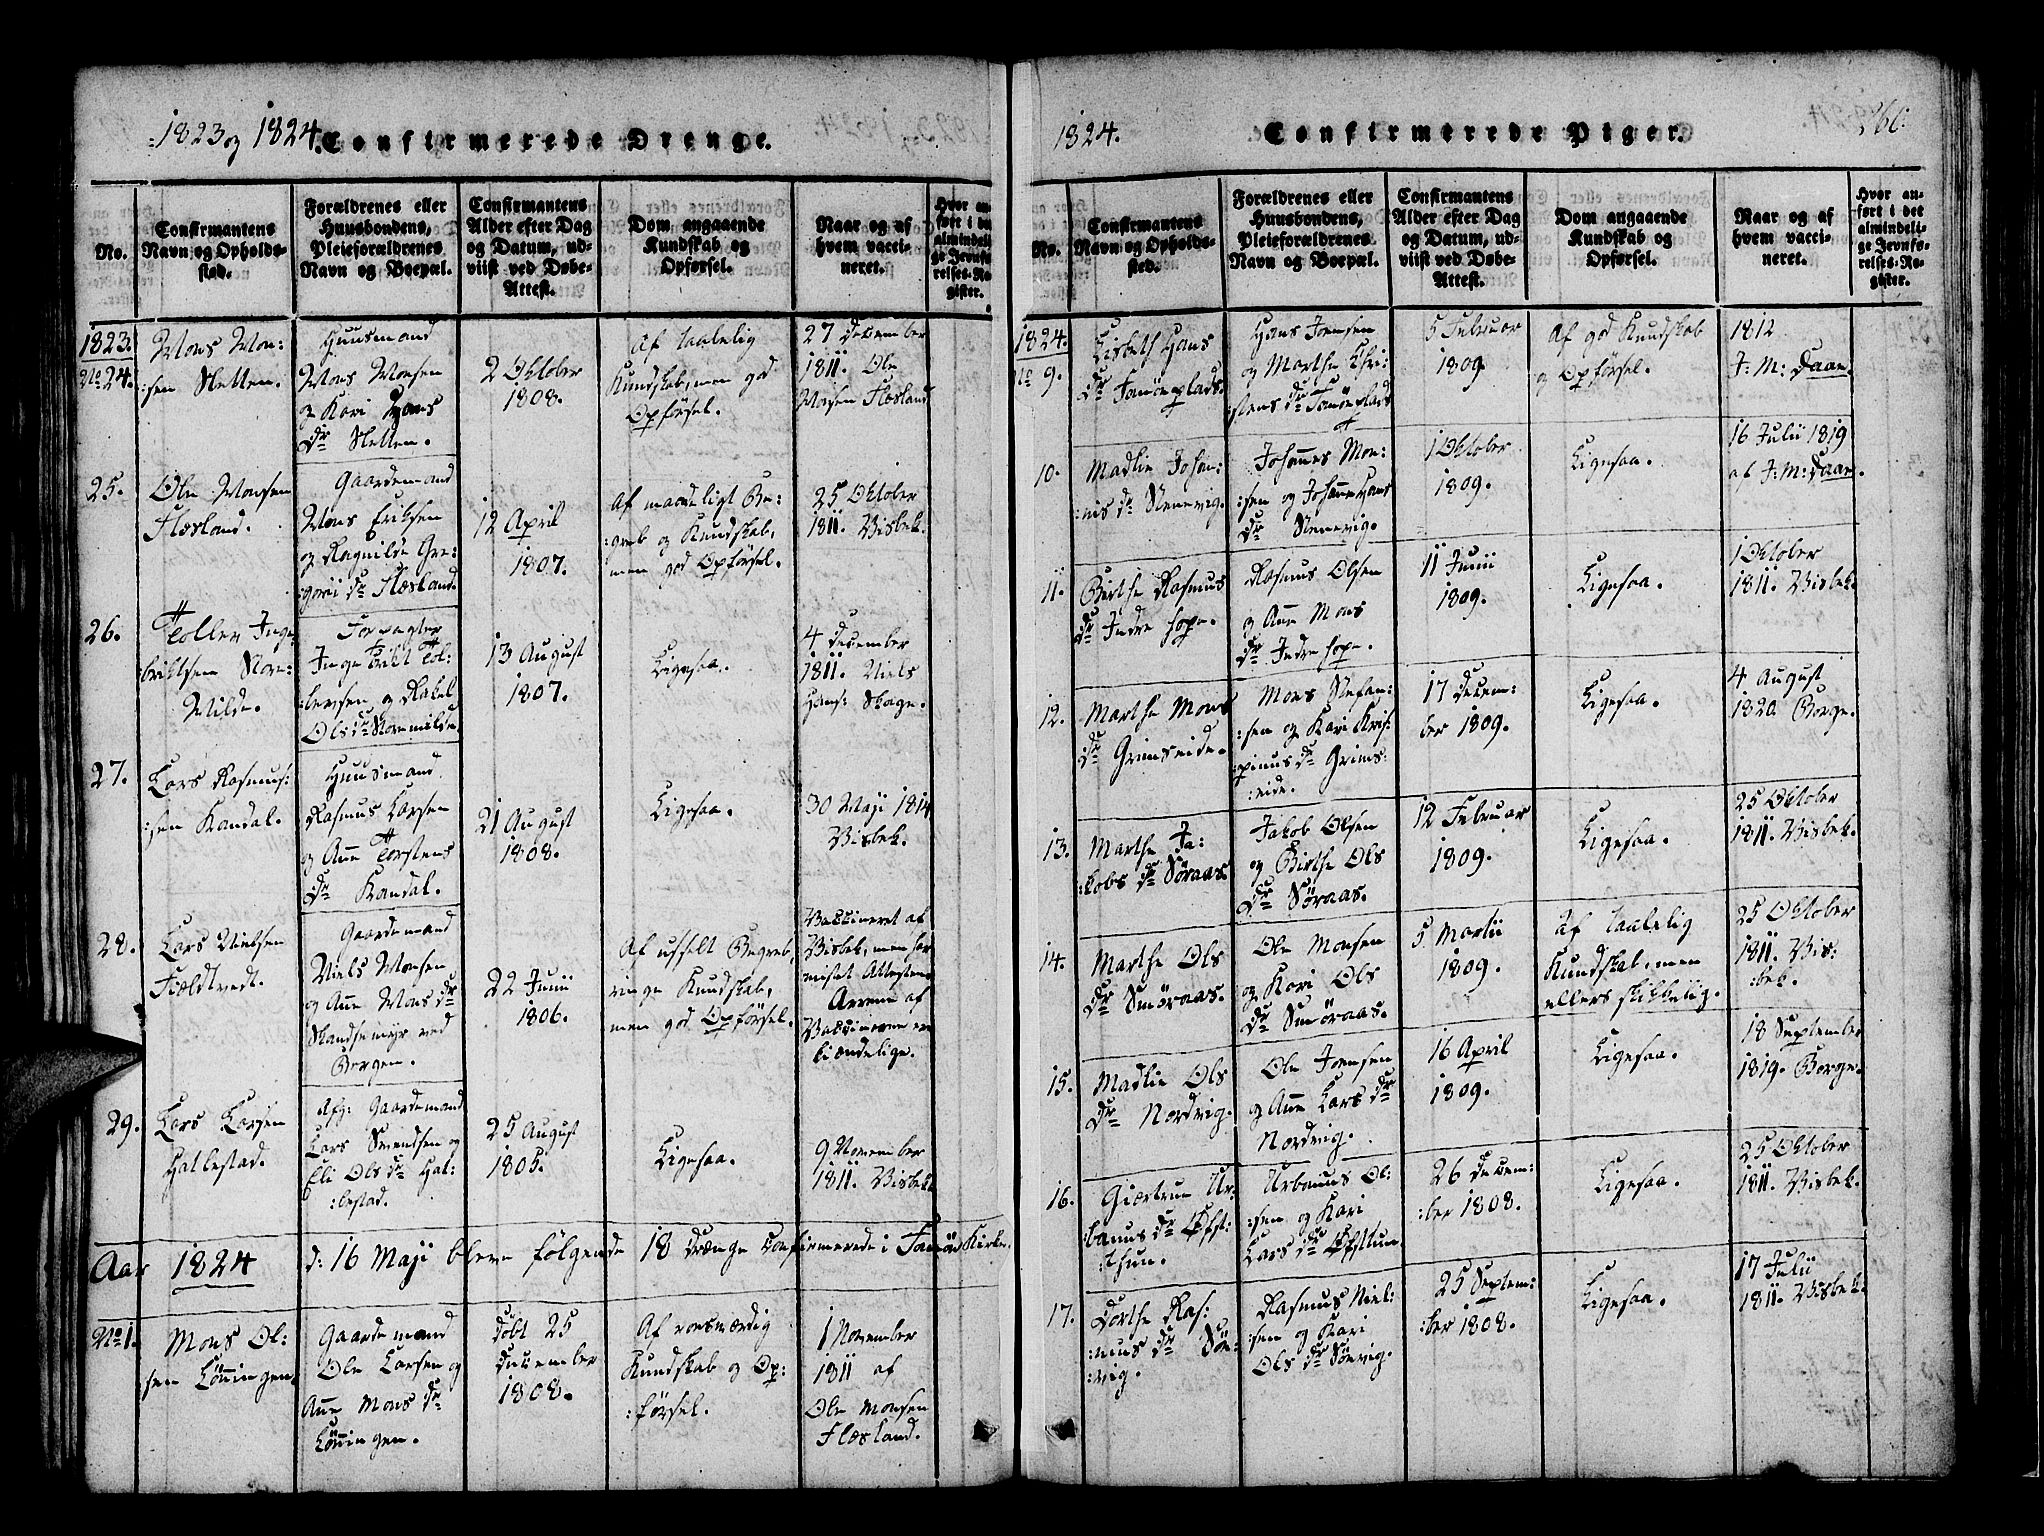 1823 og 1824. Confirmerede Drenge.
No.
Confirmantens Navn og Opholds-sted.
Forældrenes eller Huusbondens, Pleieforældrenes Navn og Boepæl.
Confirmantens Alder efter Dag og Datum, ud-viist ved Døbe-Attest.
Dom angaaende Kundskab og Opførsel.
Naar og af hvem vacci-neret.
Hvor an-ført i det almindeli-ge Jevnfø-relses-Re-gister.
1823.
No 24.
Mons Mon:
:sen Sletten.
Huusmand
Mons Monsen
og Kari Hans
Dr Sletten.
2 Oktober
1808.
Af taalelig
Kundskab, men god
Opførsel.
27 December
1811. Ole
Monsen Flæsland
25.
Ole Monsen
Flæsland.
Gaardemand
Mons Eriksen
og Ragnilde Gre:
:gorii Dr Flæsland.
12 April
1807.
Af maadeligt Be:
:greb og Kundskab,
men god Opførsel.
25 Oktober
1811. Bisbek.
26.
Toller Inge
briktsen Store
Milde.
Forpagter
Ingebrikt Tol:
:lersen og Rakel
Ols Dr Storemilde.
13 August
1807.
Ligesaa.
4 December
1811. Niels
Hans: Skage.
27.
Lars Rasmus:
:sen Kandal.
Huusmand
Rasmus Larsen
og Ane Torstens
Dr Kandal.
21 August
1808.
Ligesaa.
30 Maji 1814
Bisbek.
28.
Lars Nielsen
Fieldtvedt.
Gaardemand
Niels Monsen
og Ane Mons Dr
Skandsemyr ved
Bergen.
22 Junii
1806.
Af usselt Begreb,
ringe Kundskab,
men god Opførsel.
Vaccineret af
Bisbek, men har
mistet Attesten.
Arrene af
Vaccinerne ere
kiændelige.
29.
Lars Larsen
Hatlestad.
Afg: Gaardemand
Lars Svendsen og
Eli Ols Dr Hat:
:lestad.
25 August
1805.
Ligesaa.
9 November
1811. Bisbek
Aar 1824 d: 16 Maji bleve følgende 18 Drænge Confirmerede i Fanøe Kirke.
No 1.
Mons Ol:
sen Lønningen.
Gaardemand
Ole Larsen og
Ane Mons Dr
Lønningen.
Døbt 25
December
1808.
Af roesværdig
Kundskab og Op:
:førsel.
1 November
1811 af
Ole Monsen
Flæsland.
1824. Confirmerede Piger.
No.
Confirmantens Navn og Opholds-sted.
Forældrenes eller Huusbondens, Pleieforældrenes Navn og Boepæl.
Confirmantens Alder efter Dag og Datum, ud-viist ved Døbe-Attest.
Dom angaaende Kundskab og Opførsel.
Naar og af hvem vacci-neret.
Hvor an-ført i det almindeli-ge Jevnfø-relses-Re-gister.
1824.
No 9.
Lisbeth Hans
Dr Fanøeplads.
Hans Joensen
og Marthe Chri:
:stens Dr Fanøeplads
5 Februar
1809.
Af god Kundskab
og Opførsel.
1812
J: M: Daae.
10.
Madlie Johan:
:nis Dr Stenevig.
Johannes Mon:
:sen og Johanne Hans
Dr Stenevig.
1 Oktober
1809.
Ligesaa.
16 Julii 1819
af J: M: Daae
11.
Birthe Rasmus
Dr Indre Hope.
Rasmus Olsen
og Ane Mons
Dr Indre Hope.
11 Junii
1809.
Ligesaa.
1 Oktober
1811. Bisbek.
12.
Marthe Mons
:Dr Grimseide.
Mons Stefan:
:sen og Kari Kris:
:pinus Dr Grims:
:eide.
17 Decem:
ber 1809.
Ligesaa.
4 August
1820 Borge.
13.
Marthe Ja:
:kobs Dr Søraas.
Jakob Olsen
og Birthe Ols
Dr Søraas.
12 Februar
1809.
Ligesaa.
25 Oktober
1811. Bisbek.
14.
Marthe Ols
Dr Smøraas.
Ole Monsen
og Kari Ols
Dr Smøraas.
5 Martii
1809.
Af taalelig
Kundskab, men
ellers skikkelig.
25 Oktober
1811. Bis:
:bek.
15.
Madlie Ols
Dr Nordvig.
Ole Joensen
og Ane Lars Dr
Nordvig.
16 April
1809.
Ligesaa.
18 September
1819. Borge.
16.
Giertrue Ur:
banus Dr Øfst:
:thun.
Urbanus Ol:
:sen og Kari
Lars Dr Øfsttun.
26 Decem:
:ber 1808.
Ligesaa.
25 Oktober
1811. Bisbek.
17.
Dorthe Ras:
:mus Dr Søn:
:vig.
Rasmus Niel:
:sen og Kari
Ols Dr Sønvig.
25 Septem:
:ber 1808.
Ligesaa.
17 Julii
1811. Bisbek.